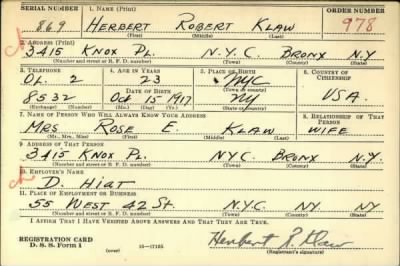 SERIAL NUMBER 1. NAME (Print) ORDER NUMBER
869 HERBERT ROBERT KLAW 978
(First) (Middle) (Last)
2. ADDRESS (Print)
3415 KNOX PL. N.Y.C. BRONX N.Y
(Number and street or R. F. D. number) (Town) (County) (State)
3. TELEPHONE 4. AGE IN YEARS 5. PLACE OF BIRTH 6. COUNTRY OF CITIZENSHIP
OL. 2 23 NYC
DATE OF BIRTH (Town or county)
8532 Oct 15 1917 NY USA.
(Exchange) (Number) (Mo.) (Day) (Yr.) (State or country)
7. NAME OF PERSON WHO WILL ALWAYS KNOW YOUR ADDRESS 8. RELATIONSHIP OF THAT PERSON
MRS. ROSE E. KLAW WIFE
(Mr., Mrs., Miss) (First) (Middle) (Last)
9. ADDRESS OF THAT PERSON
3415 KNOX PL. NYC BRONX N.Y.
(Number and street or R. F. D. number) (Town) (County) (State)
10. EMPLOYER'S NAME
D. HIAT
11. PLACE OF EMPLOYMENT OR BUSINESS
55 WEST 42 St. NYC. NY NY
(Number and street or R. F. D. number) (Town) (County) (State)
I AFFIRM THAT I HAVE VERIFIED ABOVE ANSWERS AND THAT THEY ARE TRUE.
REGISTRATION CARD
D. S. S. Form 1 (over) 16—17105 Herbert R. Klaw
(Registrant's signature)